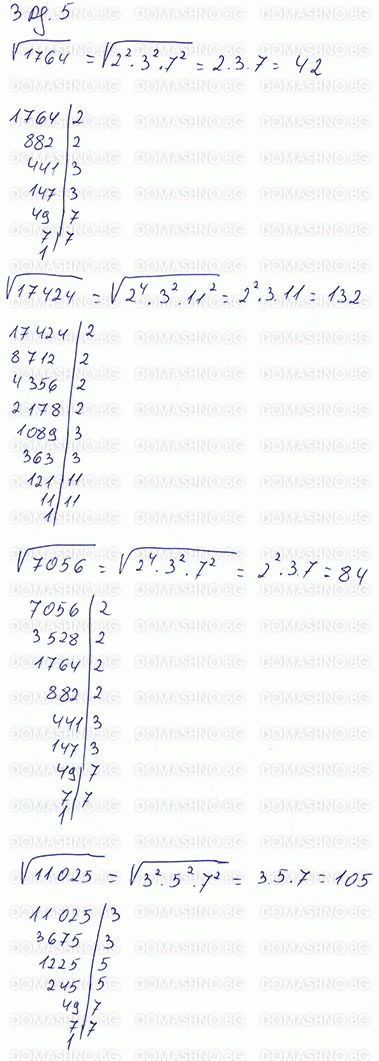 Зад. 5
√1764 = √2².3².7² = 2.3.7 = 42
1764 | 2
882 | 2
441 | 3
147 | 3
49 | 7
7 | 7
1
√17424 = √2⁴.3².11² = 2².3.11 = 132
17424 | 2
8712 | 2
4356 | 2
2178 | 2
1089 | 3
363 | 3
121 | 11
11 | 11
1
√7056 = √2⁴.3².7² = 2².3.7 = 84
7056 | 2
3528 | 2
1764 | 2
882 | 2
441 | 3
147 | 3
49 | 7
7 | 7
1
√11025 = √3².5².7² = 3.5.7 = 105
11025 | 3
3675 | 3
1225 | 5
245 | 5
49 | 7
7 | 7
1
DOMASHNO.BG